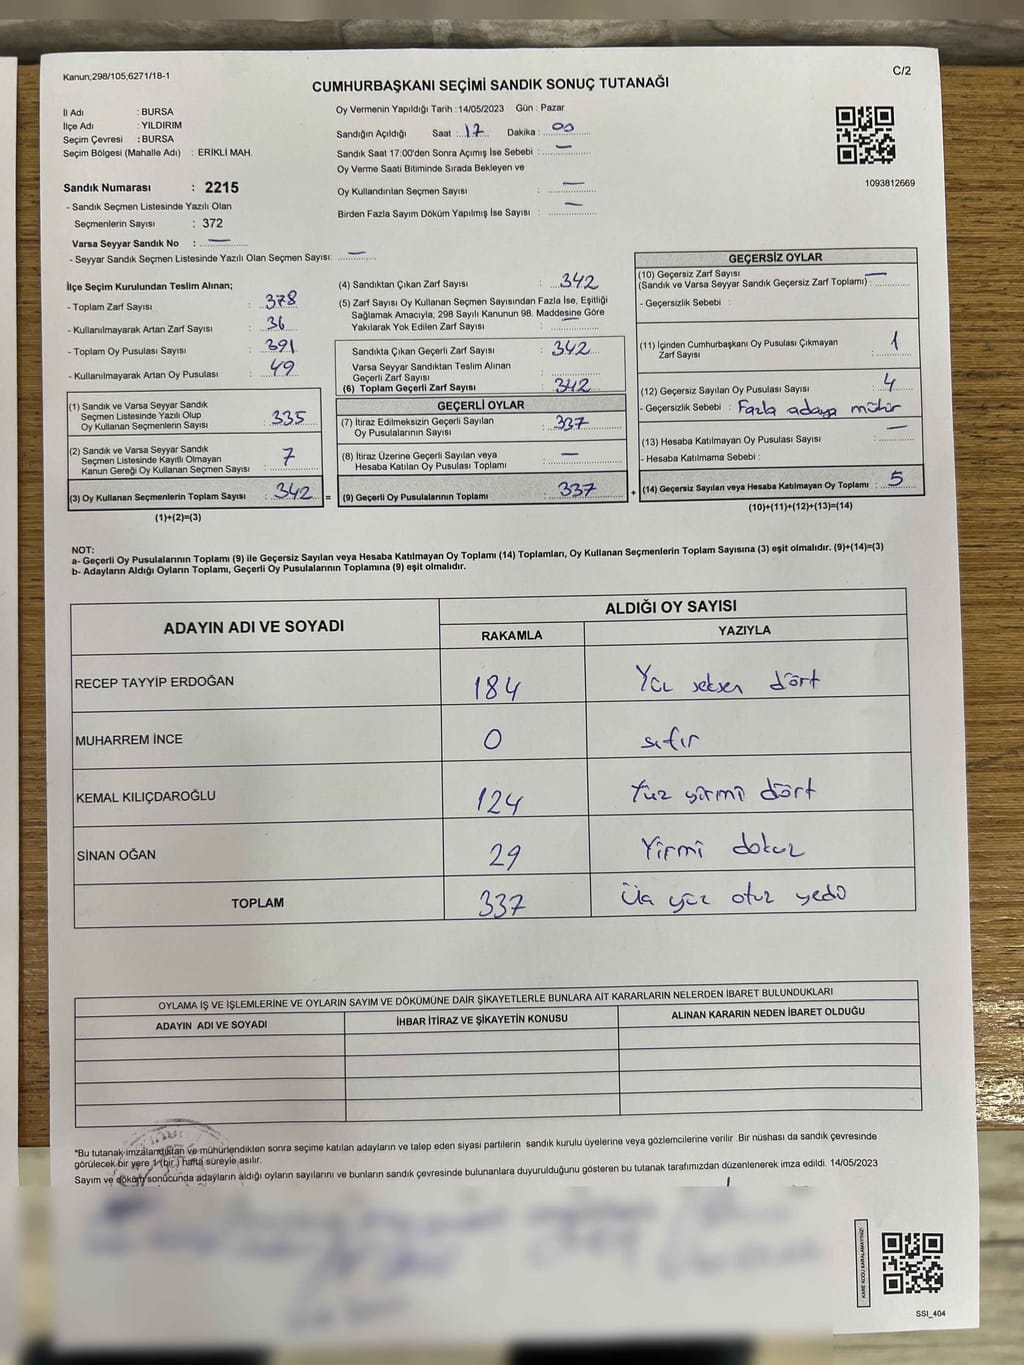 Kanun;298/105;6271/18-1
C/2
CUMHURBAŞKANI SEÇİMİ SANDIK SONUÇ TUTANAĞI
İl Adı : BURSA
İlçe Adı : YILDIRIM
Seçim Çevresi : BURSA
Seçim Bölgesi (Mahalle Adı) : ERİKLİ MAH.
Sandık Numarası : 2215
- Sandık Seçmen Listesinde Yazılı Olan
Seçmenlerin Sayısı : 372
Varsa Seyyar Sandık No : —
- Seyyar Sandık Seçmen Listesinde Yazılı Olan Seçmen Sayısı: —
Oy Vermenin Yapıldığı Tarih :14/05/2023 Gün : Pazar
Sandığın Açıldığı Saat : 17 Dakika : 00
Sandık Saat 17:00'den Sonra Açımış İse Sebebi : —
Oy Verme Saati Bitiminde Sırada Bekleyen ve
Oy Kullandırılan Seçmen Sayısı : —
Birden Fazla Sayım Döküm Yapılmış İse Sayısı : —
1093812669
İlçe Seçim Kurulundan Teslim Alınan;
- Toplam Zarf Sayısı : 378
- Kullanılmayarak Artan Zarf Sayısı : 36
- Toplam Oy Pusulası Sayısı : 391
- Kullanılmayarak Artan Oy Pusulası : 49
(1) Sandık ve Varsa Seyyar Sandık
Seçmen Listesinde Yazılı Olup
Oy Kullanan Seçmenlerin Sayısı : 335
(2) Sandık ve Varsa Seyyar Sandık
Seçmen Listesinde Kayıtlı Olmayan
Kanun Gereği Oy Kullanan Seçmen Sayısı : 7
(3) Oy Kullanan Seçmenlerin Toplam Sayısı : 342 =
(1)+(2)=(3)
(4) Sandıktan Çıkan Zarf Sayısı : 342
(5) Zarf Sayısı Oy Kullanan Seçmen Sayısından Fazla İse, Eşitliği
Sağlamak Amacıyla; 298 Sayılı Kanunun 98. Maddesine Göre
Yakılarak Yok Edilen Zarf Sayısı : —
Sandıkta Çıkan Geçerli Zarf Sayısı : 342
Varsa Seyyar Sandıktan Teslim Alınan
Geçerli Zarf Sayısı :
(6) Toplam Geçerli Zarf Sayısı : 342
GEÇERLİ OYLAR
(7) İtiraz Edilmeksizin Geçerli Sayılan
Oy Pusulalarının Sayısı : 337
(8) İtiraz Üzerine Geçerli Sayılan veya
Hesaba Katılan Oy Pusulası Toplamı : —
(9) Geçerli Oy Pusulalarının Toplamı : 337 +
GEÇERSİZ OYLAR
(10) Geçersiz Zarf Sayısı
(Sandık ve Varsa Seyyar Sandık Geçersiz Zarf Toplamı) : —
- Geçersizlik Sebebi :
(11) İçinden Cumhurbaşkanı Oy Pusulası Çıkmayan
Zarf Sayısı : 1
(12) Geçersiz Sayılan Oy Pusulası Sayısı : 4
- Geçersizlik Sebebi : Fazla adaya mühür
(13) Hesaba Katılmayan Oy Pusulası Sayısı : —
- Hesaba Katılmama Sebebi :
(14) Geçersiz Sayılan veya Hesaba Katılmayan Oy Toplamı : 5
(10)+(11)+(12)+(13)=(14)
NOT:
a- Geçerli Oy Pusulalarının Toplamı (9) ile Geçersiz Sayılan veya Hesaba Katılmayan Oy Toplamı (14) Toplamları, Oy Kullanan Seçmenlerin Toplam Sayısına (3) eşit olmalıdır. (9)+(14)=(3)
b- Adayların Aldığı Oyların Toplamı, Geçerli Oy Pusulalarının Toplamına (9) eşit olmalıdır.
ADAYIN ADI VE SOYADI
ALDIĞI OY SAYISI
RAKAMLA YAZIYLA
RECEP TAYYİP ERDOĞAN 184 Yüz seksen dört
MUHARREM İNCE 0 sıfır
KEMAL KILIÇDAROĞLU 124 Yüz yirmi dört
SİNAN OĞAN 29 Yirmi dokuz
TOPLAM 337 Üç yüz otuz yedi
OYLAMA İŞ VE İŞLEMLERİNE VE OYLARIN SAYIM VE DÖKÜMÜNE DAİR ŞİKAYETLERLE BUNLARA AİT KARARLARIN NELERDEN İBARET BULUNDUKLARI
ADAYIN ADI VE SOYADI İHBAR İTİRAZ VE ŞİKAYETİN KONUSU ALINAN KARARIN NEDEN İBARET OLDUĞU
*Bu tutanak imzalandıktan ve mühürlendikten sonra seçime katılan adayların ve talep eden siyasi partilerin sandık kurulu üyelerine veya gözlemcilerine verilir .Bir nüshası da sandık çevresinde
görülecek bir yere 1 (bir ) hafta süreyle asılır.
Sayım ve döküm sonucunda adayların aldığı oyların sayılarını ve bunların sandık çevresinde bulunanlara duyurulduğunu gösteren bu tutanak tarafımızdan düzenlenerek imza edildi. 14/05/2023
KARE KODU KARALAMAYINIZ!
SSI_404